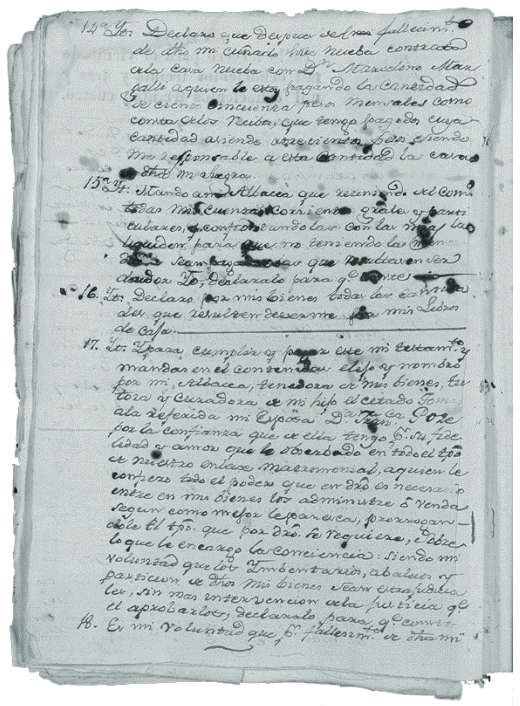 14ª Yt. Declaro que despues del fallecimto
de dho mi cuñado hise nueba contrata
ela casa nueba con Dn Marcelino Mar
gall aquien le estoy pagando la Cantidad
de ciento cincuenta pesos mensales como
consta elos recibos, que tengo pagados, cuya
cantidad asiende atrecientos pesos siendo
responsable a esta cantidad la casa
dha mi suegra.
15ª Yt. Mando ami Albacea que reuniendo
todas mis cuentas corrientes grales y parti
culares, y confrontando las con las mias las
liquiden, para que no teniendo las
sean que resultasen ser
deudor Yo, declaralo para qe conste
16. Yt. Declaro por mis bienes todas las cantida
des que resulten deverme por mis Libros
de Casa.
17. Yt. Ypara cumplir y pagar este mi testamto y
mandas en el contenidas elijo y nombro
por mi Albacea, tenedora e mis bienes, tu
tora y curadora e mi hijo el citado Tomas
ala referida mi Esposa Da Franca Poze
por la confianza que e ella tengo pr su fide
lidad y amor que le obcerbado en todo el tpo
e nuestro enlace matrimonial, aquien le
confiero todo el poder que en dro es necesario
entre en mis bienes los administre ó venda
segun como mejor le paresca, prorrogan
dole el tpo. que por dro. se requiere, sobre
lo que le encargo la conciencia: siendo mi
voluntad que los Ymbentarios, abaluos y
particion e dhos mis bienes sean extrajudicia
les, sin mas intervencion ela justicia qe
el aprobarlos, declaralo para qe conste
18. Es mi voluntad que pr fallesimto e dha mi